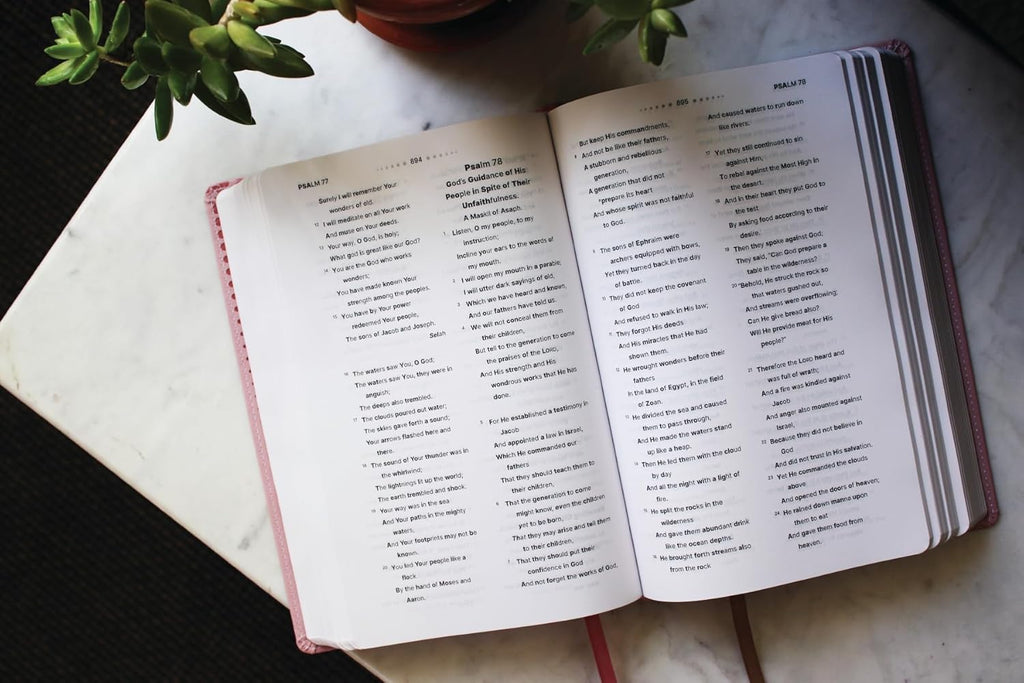 PSALM 77
894
Surely I will remember Your
wonders of old.
12 I will meditate on all Your work
And muse on Your deeds.
13 Your way, O God, is holy;
What god is great like our God?
14 You are the God who works
wonders;
You have made known Your
strength among the peoples.
15 You have by Your power
redeemed Your people,
The sons of Jacob and Joseph.
Selah
16 The waters saw You, O God;
The waters saw You, they were in
anguish;
The deeps also trembled.
17 The clouds poured out water;
The skies gave forth a sound;
Your arrows flashed here and
there.
18 The sound of Your thunder was in
the whirlwind;
The lightnings lit up the world;
The earth trembled and shook.
19 Your way was in the sea
And Your paths in the mighty
waters,
And Your footprints may not be
known.
20 You led Your people like a
flock
By the hand of Moses and
Aaron.
Psalm 78
God's Guidance of His
People in Spite of Their
Unfaithfulness.
A Maskil of Asaph.
1 Listen, O my people, to my
instruction;
Incline your ears to the words of
my mouth.
2 I will open my mouth in a parable;
I will utter dark sayings of old,
3 Which we have heard and known,
And our fathers have told us.
4 We will not conceal them from
their children,
But tell to the generation to come
the praises of the LORD,
And His strength and His
wondrous works that He has
done.
5 For He established a testimony in
Jacob
And appointed a law in Israel,
Which He commanded our
fathers
That they should teach them to
their children,
6 That the generation to come
might know, even the children
yet to be born,
That they may arise and tell them
to their children,
7 That they should put their
confidence in God
And not forget the works of God,
895
PSALM 78
But keep His commandments,
8 And not be like their fathers,
A stubborn and rebellious
generation,
A generation that did not
prepare its heart
And whose spirit was not faithful
to God.
9 The sons of Ephraim were
archers equipped with bows,
Yet they turned back in the day
of battle.
10 They did not keep the covenant
of God
And refused to walk in His law;
11 They forgot His deeds
And His miracles that He had
shown them.
12 He wrought wonders before their
fathers
In the land of Egypt, in the field
of Zoan.
13 He divided the sea and caused
them to pass through,
And He made the waters stand
up like a heap.
14 Then He led them with the cloud
by day
And all the night with a light of
fire.
15 He split the rocks in the
wilderness
And gave them abundant drink
like the ocean depths.
16 He brought forth streams also
from the rock
And caused waters to run down
like rivers.
17 Yet they still continued to sin
against Him,
To rebel against the Most High in
the desert.
18 And in their heart they put God to
the test
By asking food according to their
desire.
19 Then they spoke against God;
They said, "Can God prepare a
table in the wilderness?
20 "Behold, He struck the rock so
that waters gushed out,
And streams were overflowing;
Can He give bread also?
Will He provide meat for His
people?"
21 Therefore the LORD heard and
was full of wrath;
And a fire was kindled against
Jacob
And anger also mounted against
Israel,
22 Because they did not believe in
God
And did not trust in His salvation.
23 Yet He commanded the clouds
above
And opened the doors of heaven;
24 He rained down manna upon
them to eat
And gave them food from
heaven.